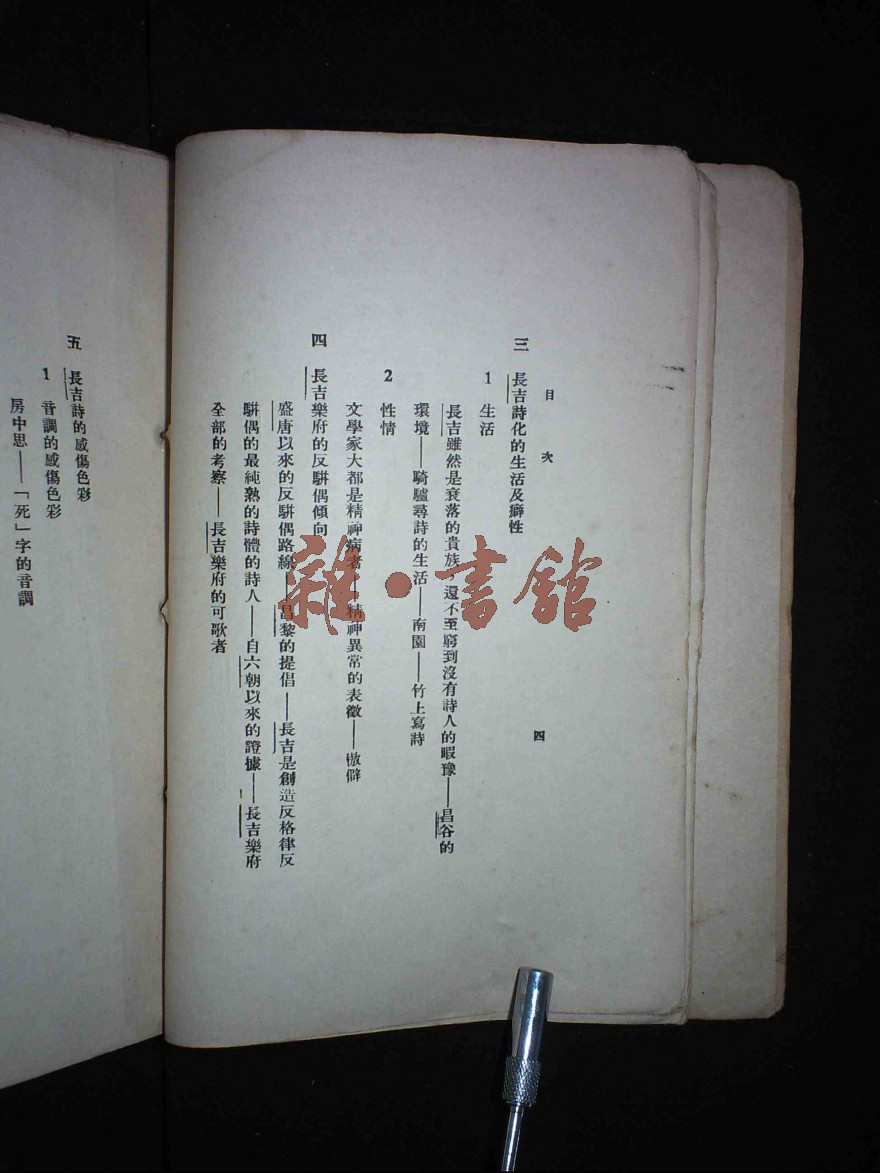 目次
四
三 長吉詩化的生活及癖性
1 生活
長吉雖然是衰落的貴族，還不至窮到沒有詩人的暇豫——昌谷的
環境——騎驢尋詩的生活——南園——竹上寫詩
2 性情
文學家大都是精神病者——精神異常的表徵——傲僻
四 長吉樂府的反駢偶傾向
盛唐以來的反駢偶路線——昌黎的提倡——長吉是創造反格律反
駢偶的最純熟的詩體的詩人——自六朝以來的證據——長吉樂府
全部的考察——長吉樂府的可歌者
五 長吉詩的感傷色彩
1 音調的感傷色彩
房中思——「死」字的音調
雜·書館